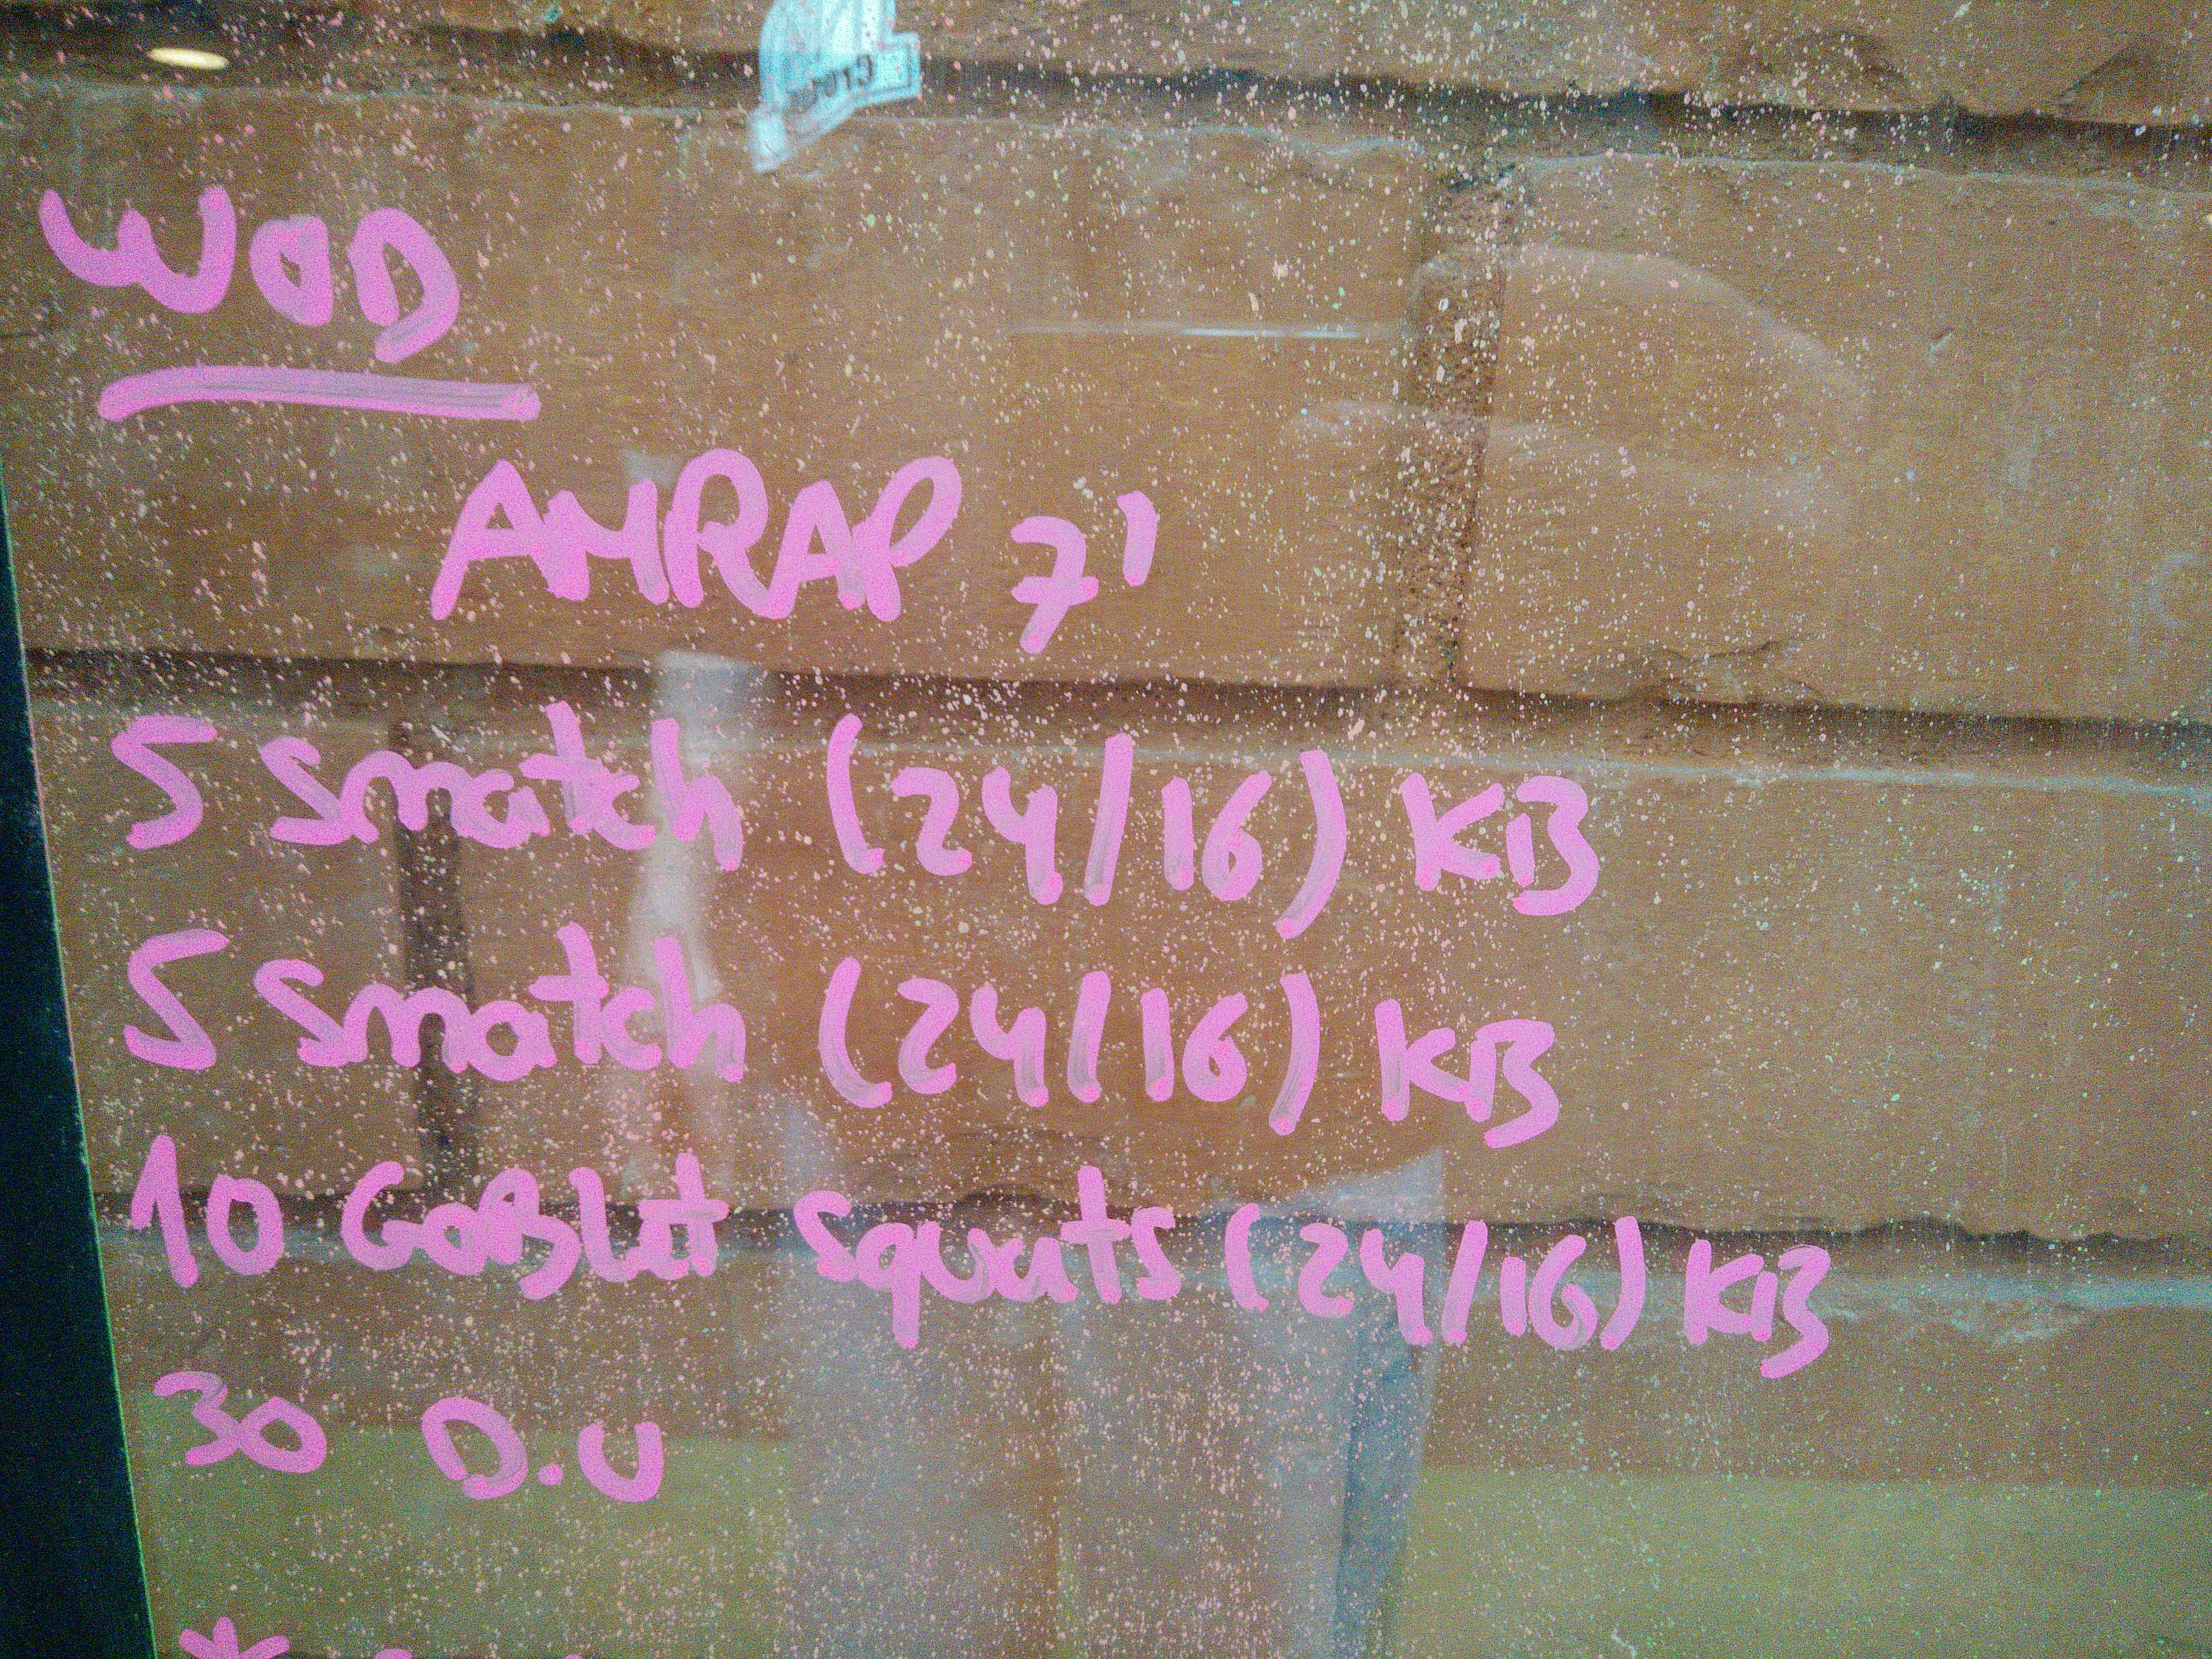 WOD
AMRAP 7'
5 snatch (24/16) KB
5 snatch (24/16) KB
10 GoBlet squats (24/16) KB
30 D.U
*